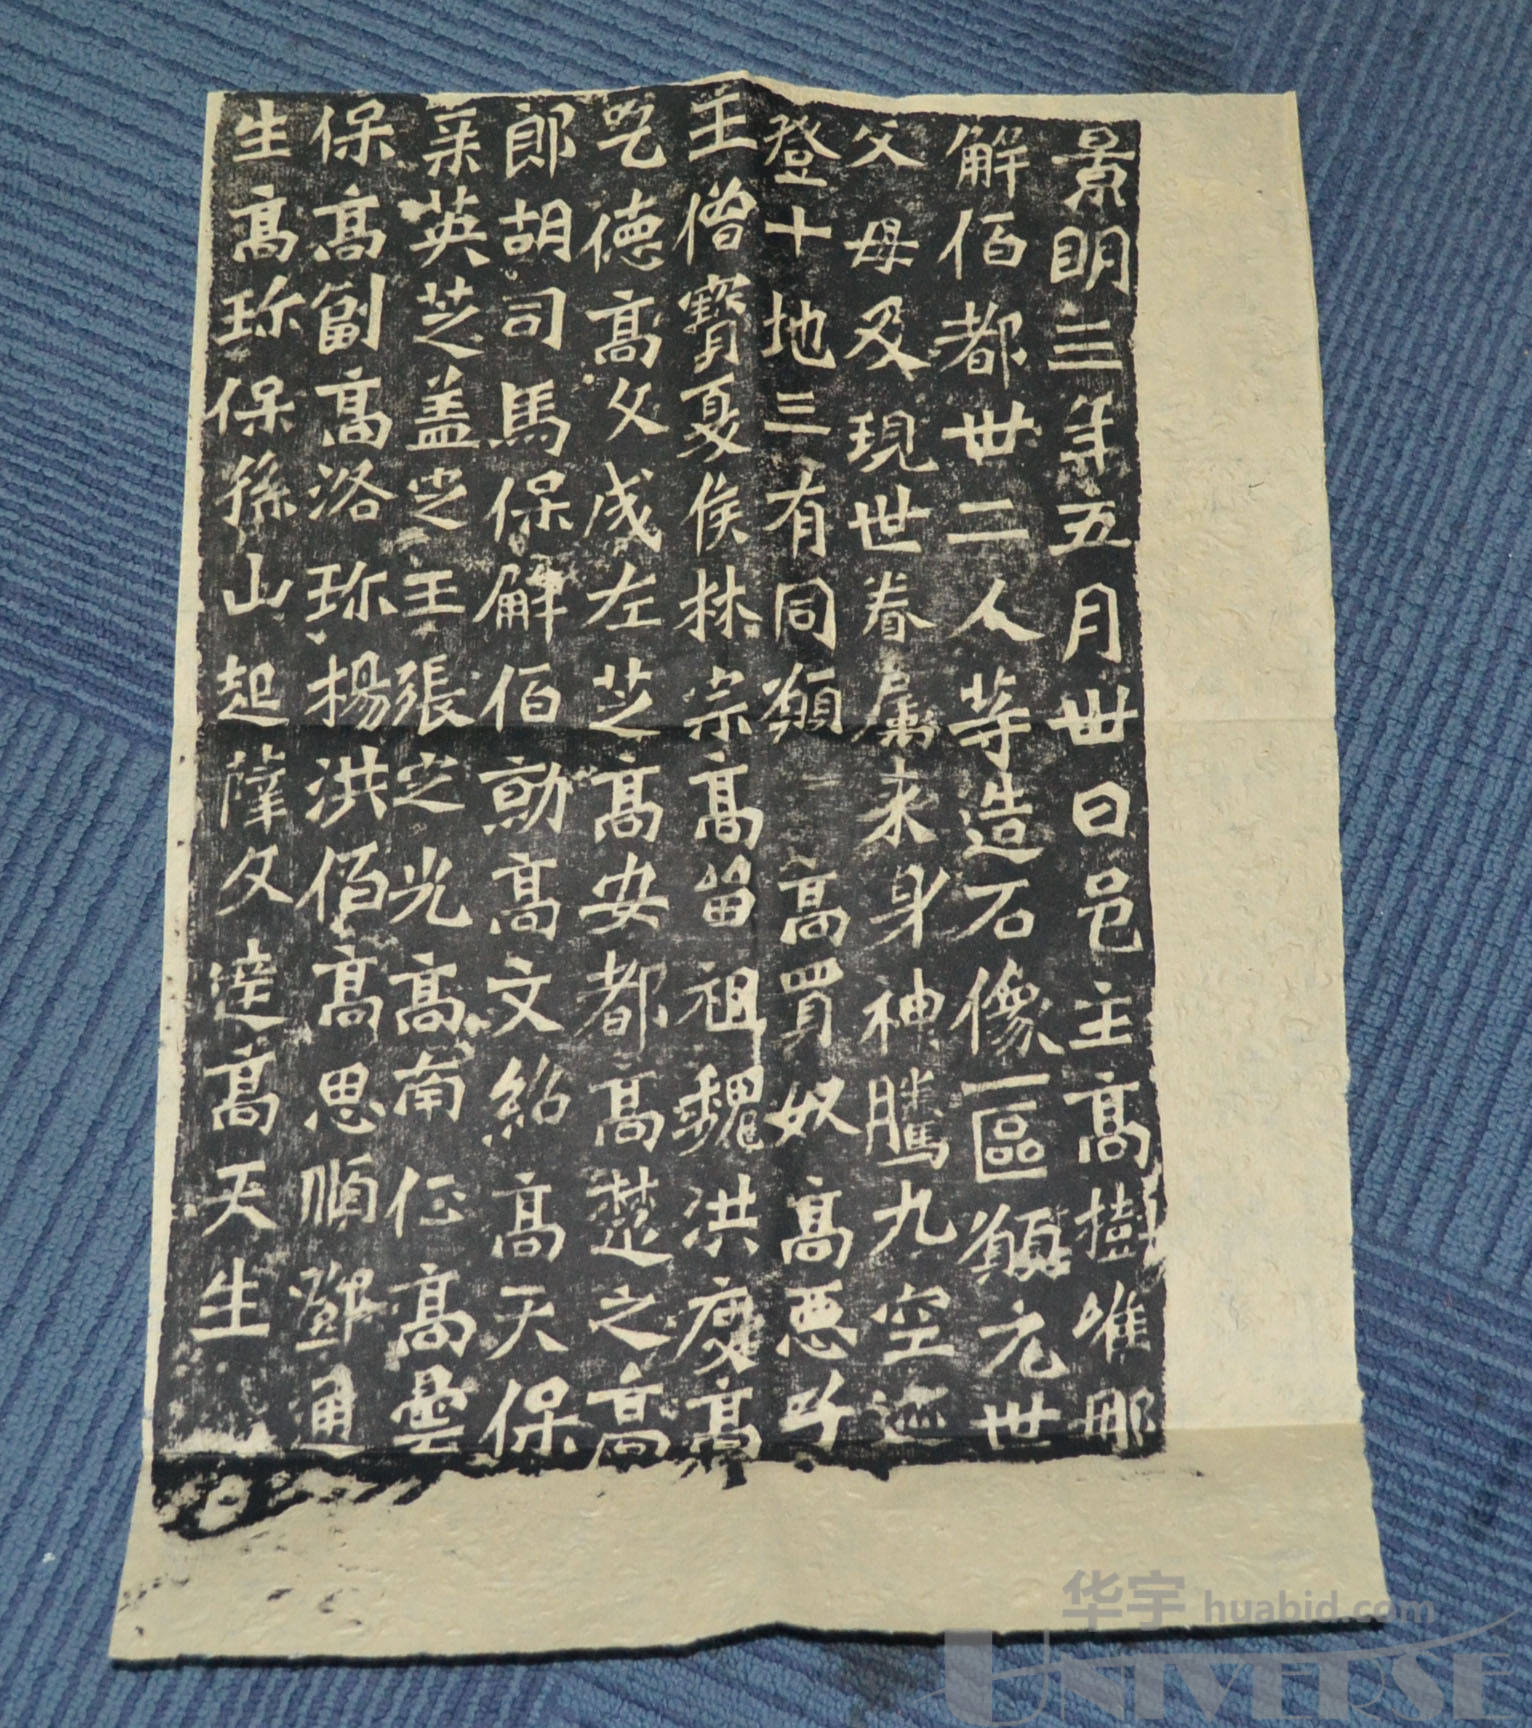 景明三年五月卅日邑主高樹唯那
解佰都卅二人等造石像一區願元世
父母及現世眷属来身神騰九空迊
登十地三有同願 高買奴高悪子
王僧寶夏侯林宗高留祖魏洪度高
乞德高文成左芝高安都高楚之高
郎胡司馬保解佰勍高文紹高天保
英芝盖定王張定光高南征高曇
保高副高洛珎楊洪佰高思順鄧通
生高珎保孫山起薩文達高天生
华宇 huabid.com
UNIVERSE